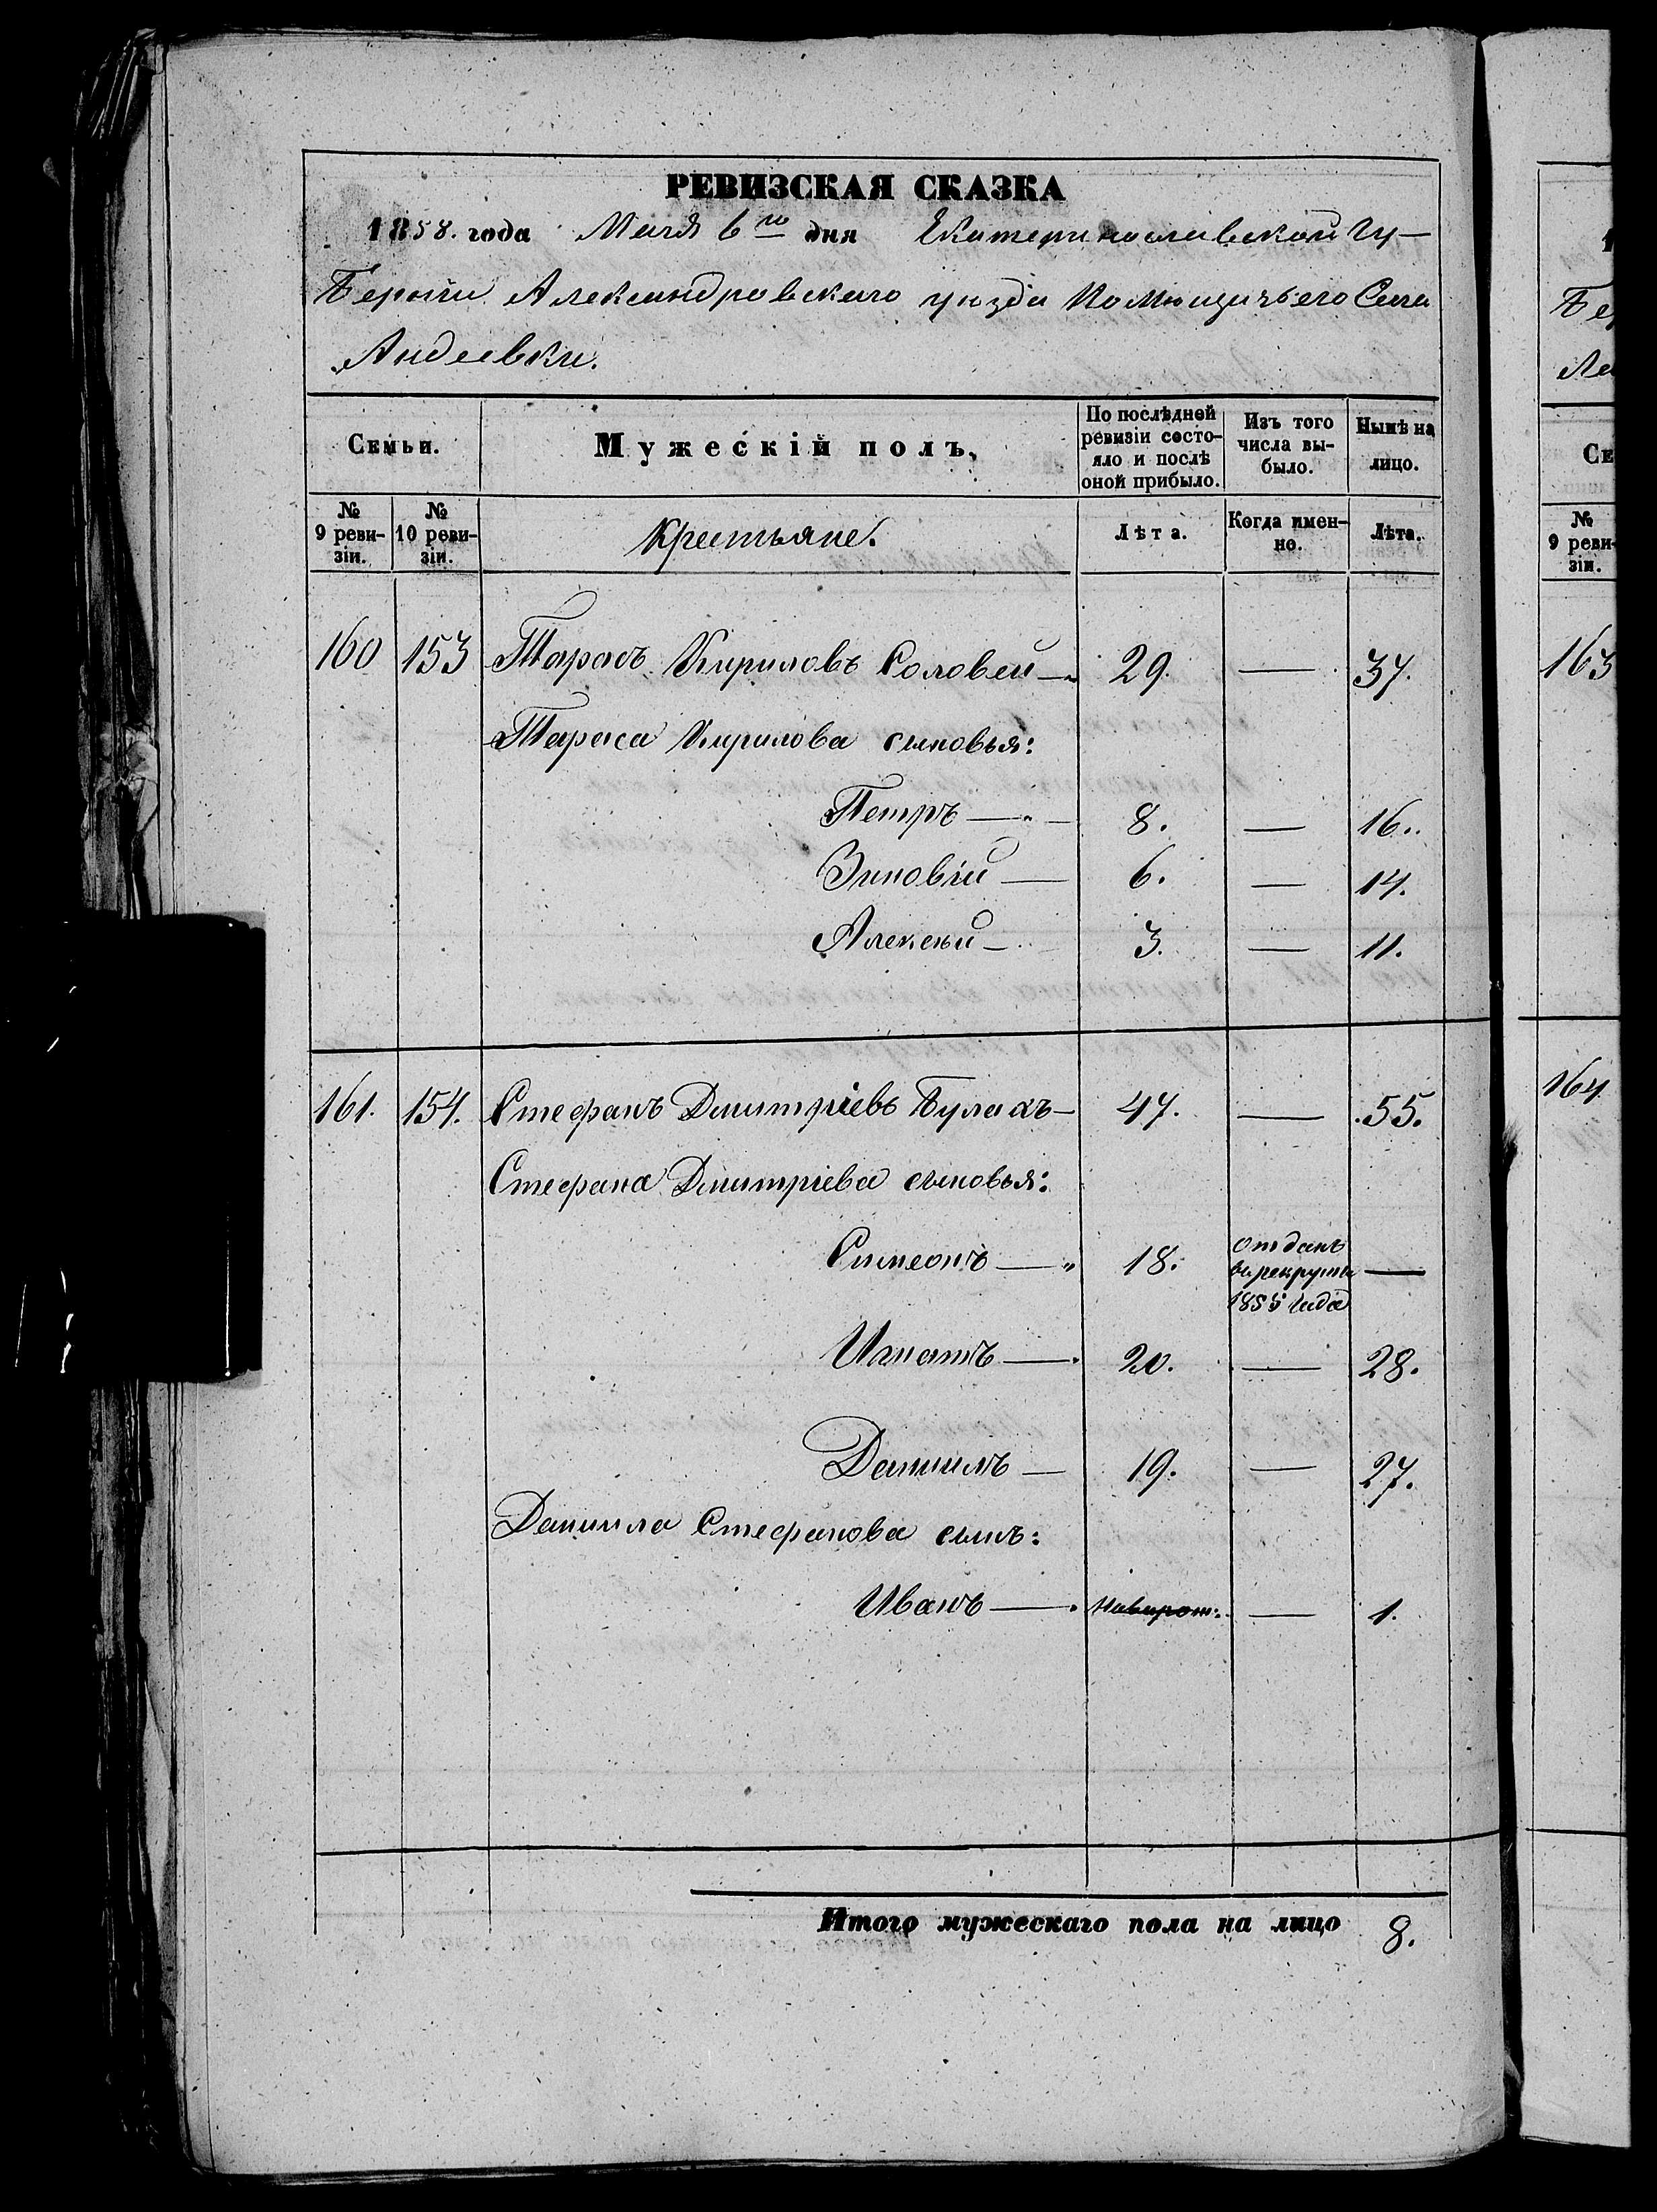 РЕВИЗСКАЯ СКАЗКА
1858. года Мая 6го дня Екатеринославской Гу-
берніи Александровскаго уѣзда Помѣщичьего Села
Андеевки.
Семьи. Мужескій полъ. По послѣдней ревизіи состо- яло и послѣ оной прибыло. Изъ того числа вы- было. Нынѣ на лицо.
№ 9 реви- зіи. № 10 реви- зіи. Крестьяне. Лѣта. Когда имен- но. Лѣта.
160 153 Тарасъ Кириловъ Соловей — 29. — 37.
Тараса Кирилова сыновья:
Петръ — 8. — 16.
Зиновій — 6. — 14.
Алексѣй — 3. — 11.
161. 154. Стефанъ Дмитріевъ Булахъ — 47. — 55.
Стефана Дмитріева сыновья:
Симеонъ — 18. отданъ въ рекруты 1855 года —
Игнатъ — 20. — 28.
Даниилъ — 19. — 27.
Даниила Стефанова сынъ:
Иванъ — новорож: — 1.
Итого мужескаго пола на лицо 8.
Бе
Ле
Се
№
9 реви-
зіи.
163
164